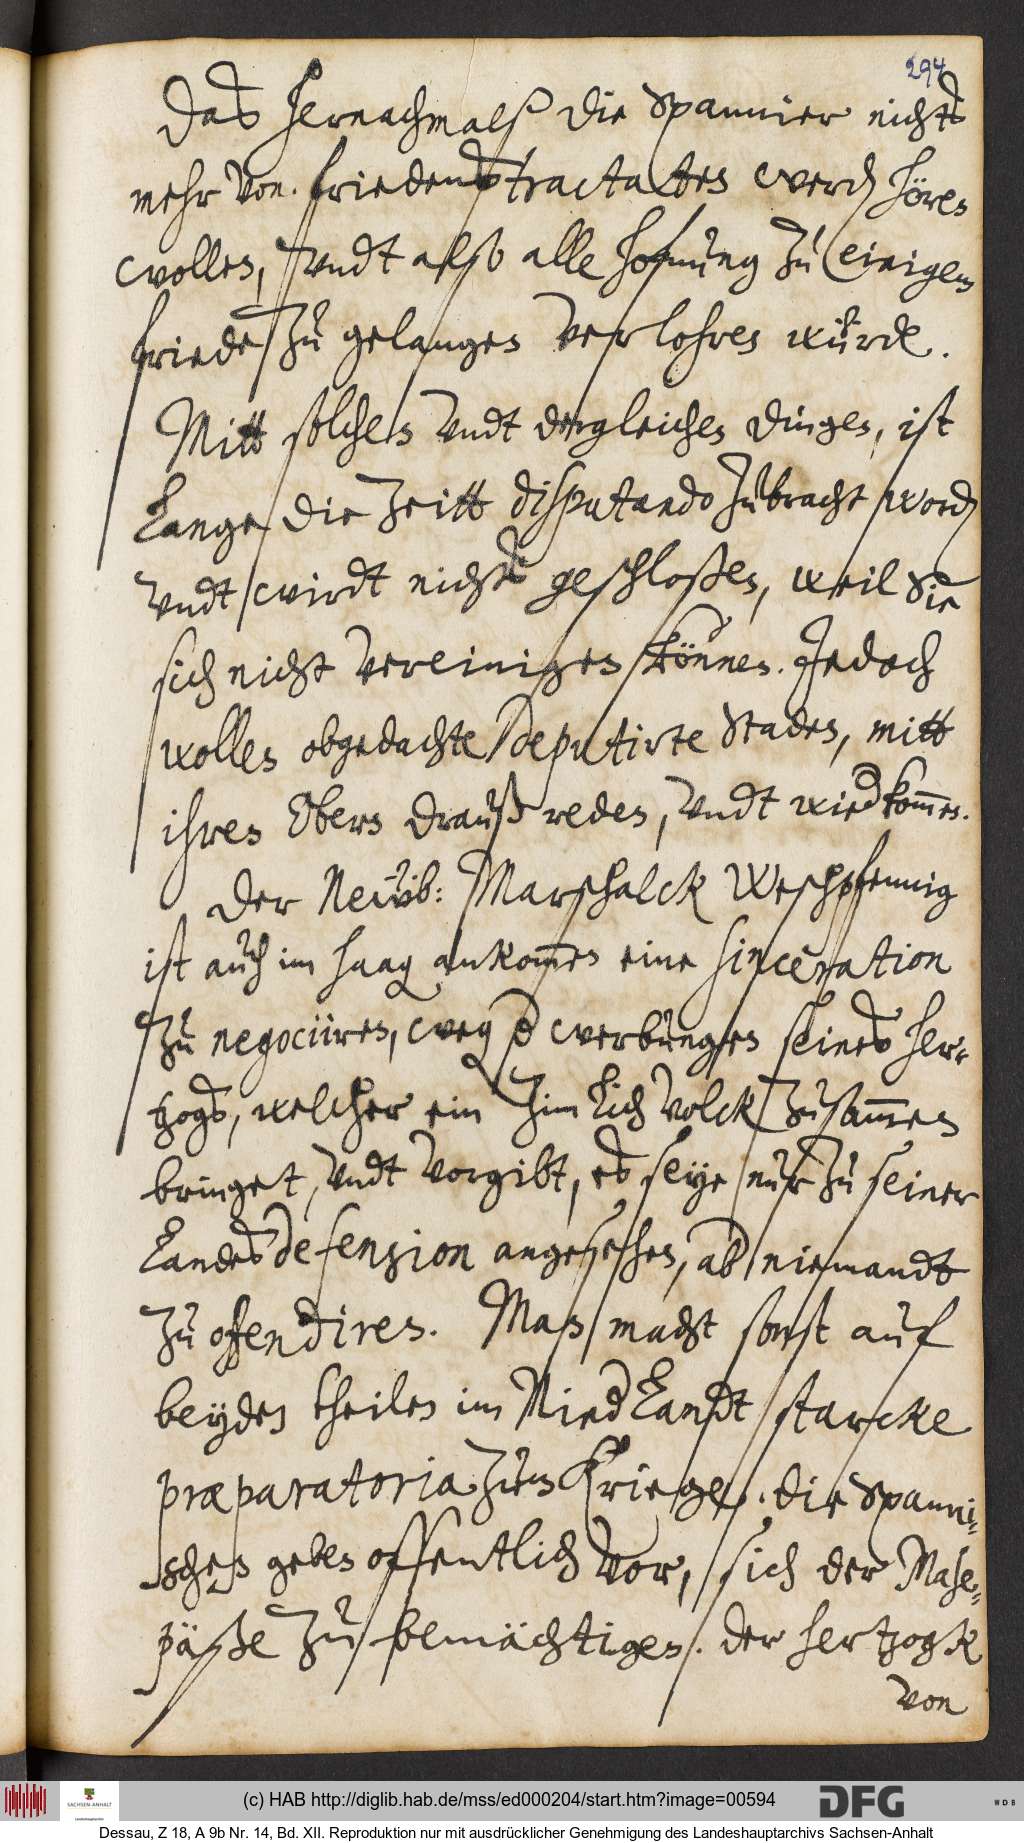 294
das hernachmalß die Spannier nichts
mehr von friedenstractaten werden hören
wollen, vndt also alle hofnung zu einigem
friede zu gelangen verlohren würde.
Mitt solchen vndt dergleichen dingen, ist
Lange die Zeitt disputando zubracht worden
vndt wirdt nichts geschloßen, weil Sie
sich nicht vereinigen können. Jedoch
wollen obgedachte Deputirte Staden, mitt
ihren Obern drauß reden, vndt wiederkommen.
Der Neüb: Marschalck Weschpfennig
ist auch im haag ankommen eine sinceration
zu negociiren, wegen der werbungen seines her-
tzogs, welcher ein Zimlich volck zusammen
bringet, vndt vorgibt, es seye nur zu seiner
Landes defension angesehen, aber niemandt
zu ofendiren. Man macht sonst auf
beyden theilen im Niederlandt starcke
præparatoria zum Kriege. die Spanni-
schen geben offentlich vor, sich der Mase-
päße zu bemächtigen. der hertzogk
von
(c) HAB http://diglib.hab.de/mss/ed000204/start.htm?image=00594
SACHSEN-ANHALT
Landeshauptarchiv
DFG
WDB
Dessau, Z 18, A 9b Nr. 14, Bd. XII. Reproduktion nur mit ausdrücklicher Genehmigung des Landeshauptarchivs Sachsen-Anhalt